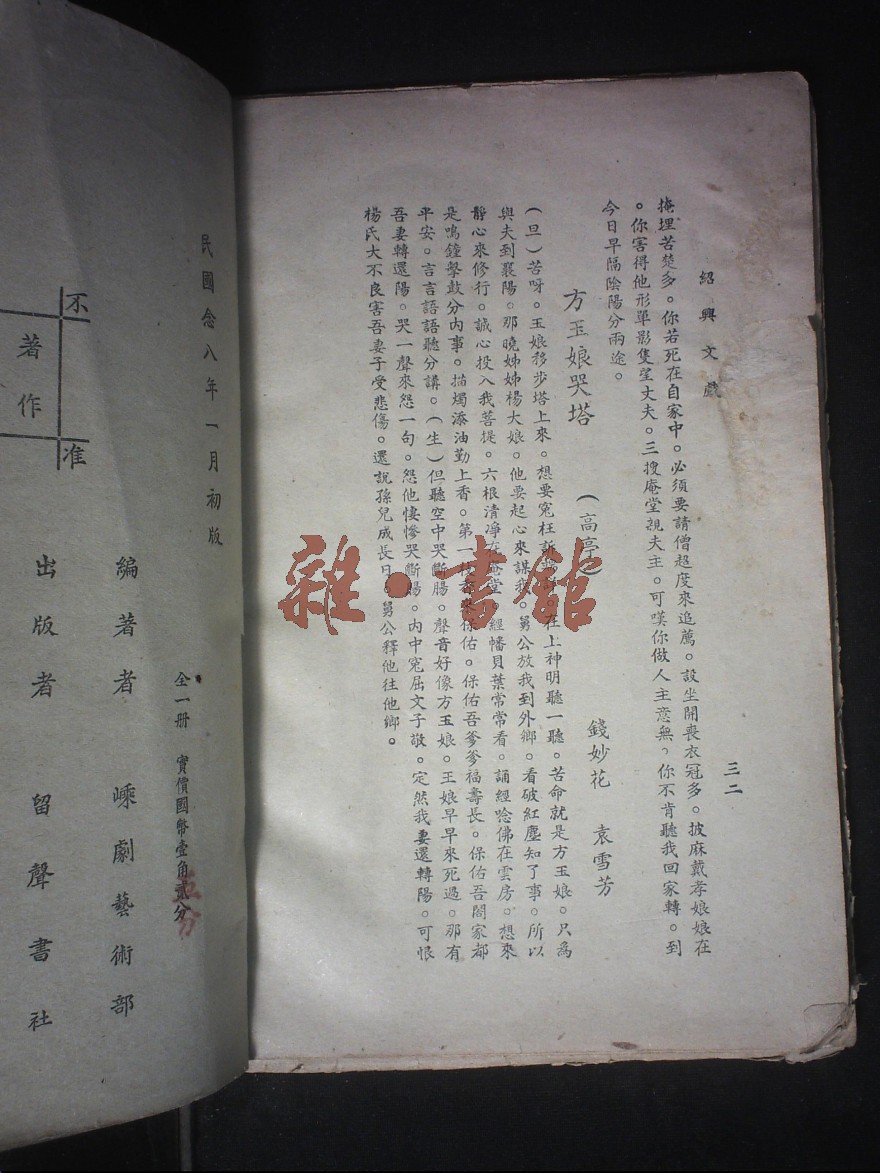 紹興文戲
三二
掩埋苦楚多。你若死在自家中。必須要請僧超度來追薦。設坐開喪衣冠多。披麻戴孝娘娘在
。你害得他形單影隻望丈夫。三搜庵堂親夫主。可嘆你做人主意無。你不肯聽我回家轉。到
今日早隔陰陽分兩途。
方玉娘哭塔
(高亭)
錢妙花 袁雪芳
(旦)苦呀。玉娘移步塔上來。想要冤枉訴 在上神明聽一聽。苦命就是方玉娘。只為
與夫到襄陽。那曉姊姊楊大娘。他要起心來謀我。舅公放我到外鄉。看破紅塵知了事。所以
靜心來修行。誠心投入我菩提。六根清凈在庵堂。經幡貝葉常常看。誦經唸佛在雲房。想來
是鳴鐘擊鼓分內事。描燭添油勤上香。第一 來保佑。保佑吾爹爹福壽長。保佑吾閤家都
平安。言言語語聽分講。(生)但聽空中哭斷腸。聲音好像方玉娘。王娘早早來死過。那有
吾妻轉還陽。哭一聲來怨一句。怨他悽慘哭斷腸。內中冤屈文子敬。定然我妻還轉陽。可恨
楊氏大不良害吾妻子受悲傷。還說孫兒成長日。舅公釋他往他鄉。
民國念八年一月初版
全一冊 實價國幣壹角貳分
五分
編著者 嵊劇藝術部
出版者 留聲書社
不准
著作
雜·書館